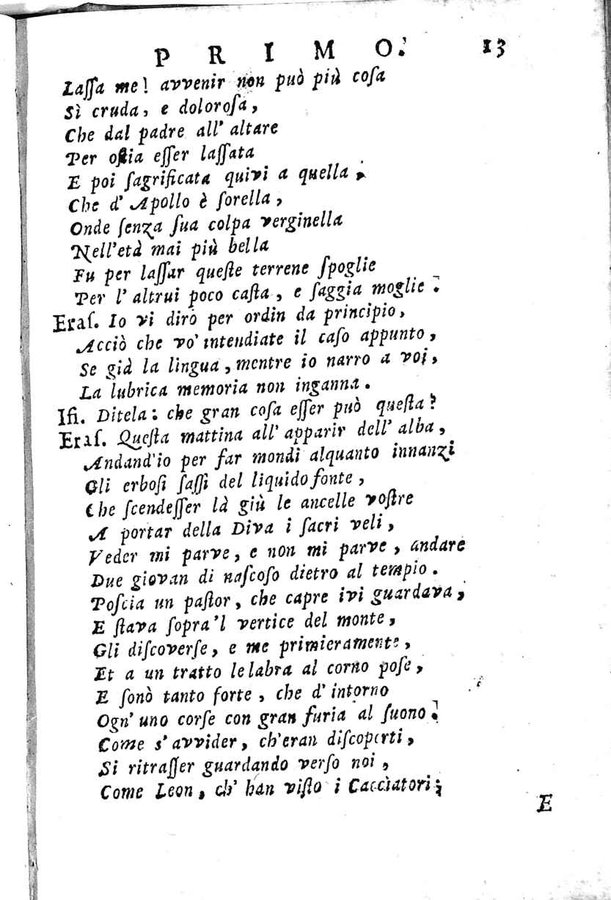 PRIMO. 13
Laſſa me! avvenir non può più coſa
Sì cruda, e doloroſa,
Che dal padre all' altare
Per oſtia eſſer laſſata
E poi ſagrificata quivi a quella,
Che d' Apollo è ſorella,
Onde ſenza ſua colpa verginella
Nell'età mai più bella
Fu per laſſar queſte terrene ſpoglie
Per l' altrui poco caſta, e ſaggia moglie.
Eraſ. Io vi dirò per ordin da principio,
Acciò che vo' intendiate il caſo appunto,
Se già la lingua, mentre io narro a voi,
La lubrica memoria non inganna.
Ifi. Ditela: che gran coſa eſſer può queſta?
Eraſ. Queſta mattina all' apparir dell' alba,
Andand'io per far mondi alquanto innanzi
Gli erboſi ſaſſi del liquido fonte,
Che ſcendeſſer là giù le ancelle voſtre
A portar della Diva i ſacri veli,
Veder mi parve, e non mi parve, andare
Due giovan di naſcoſo dietro al tempio.
Poſcia un paſtor, che capre ivi guardava,
E ſtava ſopra'l vertice del monte,
Gli diſcoverſe, e me primieramente,
Et a un tratto le labra al corno poſe,
E ſonò tanto forte, che d' intorno
Ogn' uno corſe con gran furia al ſuono.
Come s' avvider, ch'eran diſcoperti,
Si ritraſſer guardando verſo noi,
Come Leon, ch' han viſto i Cacciatori;
E